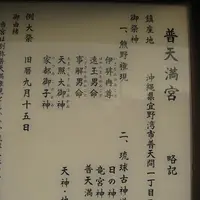 普天満宮　略記
鎮座地　沖縄県宜野湾市普天間一丁目
御祭神
一、熊野権現
伊弉冉尊
速玉男命
事解男命
天照大御神
家都御子神
二、琉球古神道
日の神
竜宮神
普天満
天神・地
例大祭　旧暦九月十五日